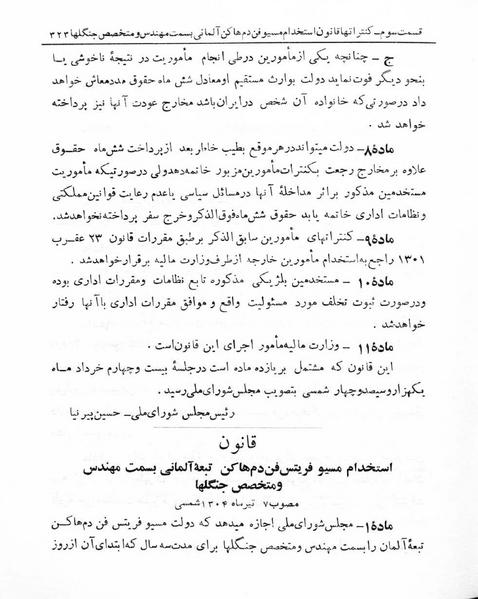 قسمت سوم ـ کنتراتها قانون استخدام مسیو فن دم هاکن آلمانی بسمت مهندس و متخصص جنگلها ۳۲۳
ج ـ چنانچه یکی از مأمورین در طی انجام مأموریت در نتیجهٔ ناخوشی یا
بنحو دیگر فوت نماید دولت بوارث مستقیم او معادل شش ماه حقوق مدد معاش خواهد
داد در صورتی که خانواده آن شخص در ایران باشد مخارج عودت آنها نیز پرداخته
خواهد شد .
مادهٔ ۸ ـ دولت میتواند در هر موقع بطیب خاطر بعد از پرداخت شش ماه حقوق
علاوه بر مخارج رجعت بکنترات مأمورین مزبور خاتمه دهد ولی در صورتیکه مأموریت
مستخدمین مذکور بر اثر مداخلهٔ آنها در مسائل سیاسی یا عدم رعایت قوانین مملکتی
و نظامات اداری خاتمه یابد حقوق شش ماه فوق الذکر و خرج سفر پرداخته نخواهد شد.
مادهٔ ۹ ـ کنتراتهای مأمورین سابق الذکر بر طبق مقررات قانون ۲۳ عقرب
۱۳۰۱ راجع به استخدام مأمورین خارجه از طرف وزارت مالیه برقرار خواهد شد .
مادهٔ ۱۰ ـ مستخدمین بلژیکی مذکوره تابع نظامات و مقررات اداری بوده
و در صورت ثبوت تخلف مورد مسئولیت واقع و موافق مقررات اداری با آنها رفتار
خواهد شد .
مادهٔ ۱۱ ـ وزارت مالیه مأمور اجرای این قانون است .
این قانون که مشتمل بر یازده ماده است در جلسهٔ بیست و چهارم خرداد ماه
یکهزار و سیصد و چهار شمسی بتصویب مجلس شورای ملی رسید .
رئیس مجلس شورای ملی ـ حسین پیرنیا
قانون
استخدام مسیو فریتس فن دم هاکن تبعهٔ آلمانی بسمت مهندس
و متخصص جنگلها
مصوب ۷ تیر ماه ۱۳۰۴ شمسی
مادهٔ ۱ ـ مجلس شورای ملی اجازه میدهد که دولت مسیو فریتس فن دم هاکن
تبعهٔ آلمان را بسمت مهندس و متخصص جنگلها برای مدت سه سال که ابتدای آن از روز